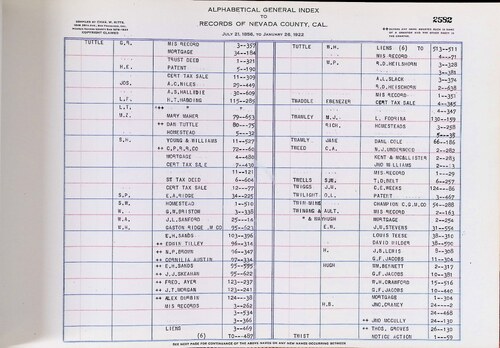 ALPHABETICAL GENERAL INDEX
TO
RECORDS OF NEVADA COUNTY, CAL.
JULY 21, 1856, TO JANUARY 26, 1922
COPYRIGHT CLAIMED
2592
TUTTLE G.R. MIS RECORD 3--357
MORTGAGE 34--184
TRUST DEED 1--371
H.E. PATENT 5--190
CERT TAX SALE 11--309
JOS. A.C.NILES 29--449
A.S.HALLIDIE 30--609
L.F. H.T.HABDING 115--285
L.T. "
M.Z. MARY MAHER 79--653
++ DAN TUTTLE 80--75
HOMESTEAD 5--32
S.H. YOUNG & WILLIAMS 11--527
++ C.P.R.R.CO 72--60
MORTGAGE 4--488
CERT TAX SALE 7--430
11--121
ST TAX DEED 6--604
CERT TAX SALE 12--77
S.P. E.A.RIDGE 34--225
S.W. HOMESTEAD 1--510
G.W.BRISTON 3--338
W.A. J.L.SANFORD 25--114
W.H. GASTON RIDGE M CO 95--623
E.H.SANDS 103--396
++ EDGIR TILLEY 96--314
++ W.P.BROWN 96--347
++ CORNILIA AUSTIN 97--334
++ E.H.SANDS 95--595
++ J.J.SKEAHAN 95--622
++ FRED. AYER 123--237
++ J.T.MORGAN 123--241
++ ALEX DURBIN 124--38
MIS RECORDS 3--262
3--534
3--366
LIENS 3--469
(6) TO--487
TUTTLE W.H. LIENS (6) TO 513--511
MIS RECORD 4--71
W.P. R.D.HEILSHORN 3--328
3--381
A.L.SLACK 3--374
R.D.HEISCHORN 2--638
MIS RECORD 1--351
TRADDLE EBENEZER CERT TAX SALE 4--345
4--347
TRAMLEY M.J. L.FODRINA 130--159
RICH. HOMESTEADS 3--258
5--35
TRAMLY JANE DANL COLE 66--186
TREED C.A. W.J.UNDERWOOD 2--282
KENT & MCALLISTER 2--283
JNO WILLIAMS 2--113
MIS RECORD 1--29
TWELLS S.W. T.D.BELT 6--257
TWIGGS J.H. C.E.WEEKS 124--86
TWILIGHT O.L. PATENT 3--467
TWIN MINE CHAMPION C.G.M.CO 54--288
TWINANG & AULT, MIS RECORD 2--163
" & WAUGH MORTGAGE 2--256
E.N. J.B.STEVENS 31--554
LOUIS TEESE 38--310
DAVID WILDER 38--590
H. J.B.LEWIS 5--308
G.F.JACOBS 11--304
HUGH WM.BENNETT 2--317
G.F.JACOBS 10--381
W.H.CRAWFORD 15--516
G.F.JACOBS 10--440
MORTGAGE 1--304
H.B. JNO.CRANEY 24--2
24--468
++ JNO MCCULLY 24--130
++ THOS. GROVES 26--130
TWIST NOTICE ACTION 1--59
SEE NEXT PAGE FOR CONTINUANCE OF THE ABOVE NAMES OR ANY NEW NAMES OCCURRING BETWEEN